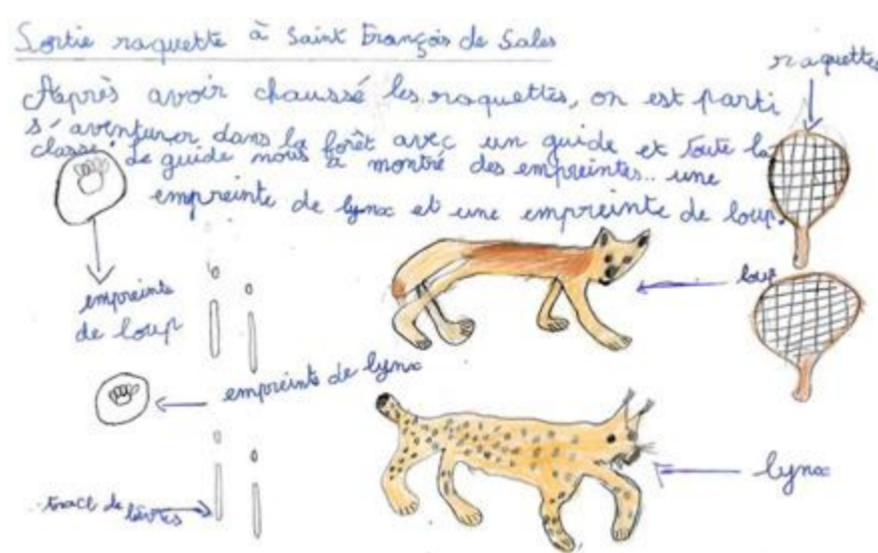 Sortie raquette à Saint François de Sales
raquettes
Après avoir chaussé les raquettes, on est parti
s'aventurer dans la forêt avec un guide et toute la
classe. Le guide nous a montré des empreintes.. une
empreinte de lynx et une empreinte de loup.
loup
empreinte
de loup
empreinte de lynx
lynx
trace de lièvres